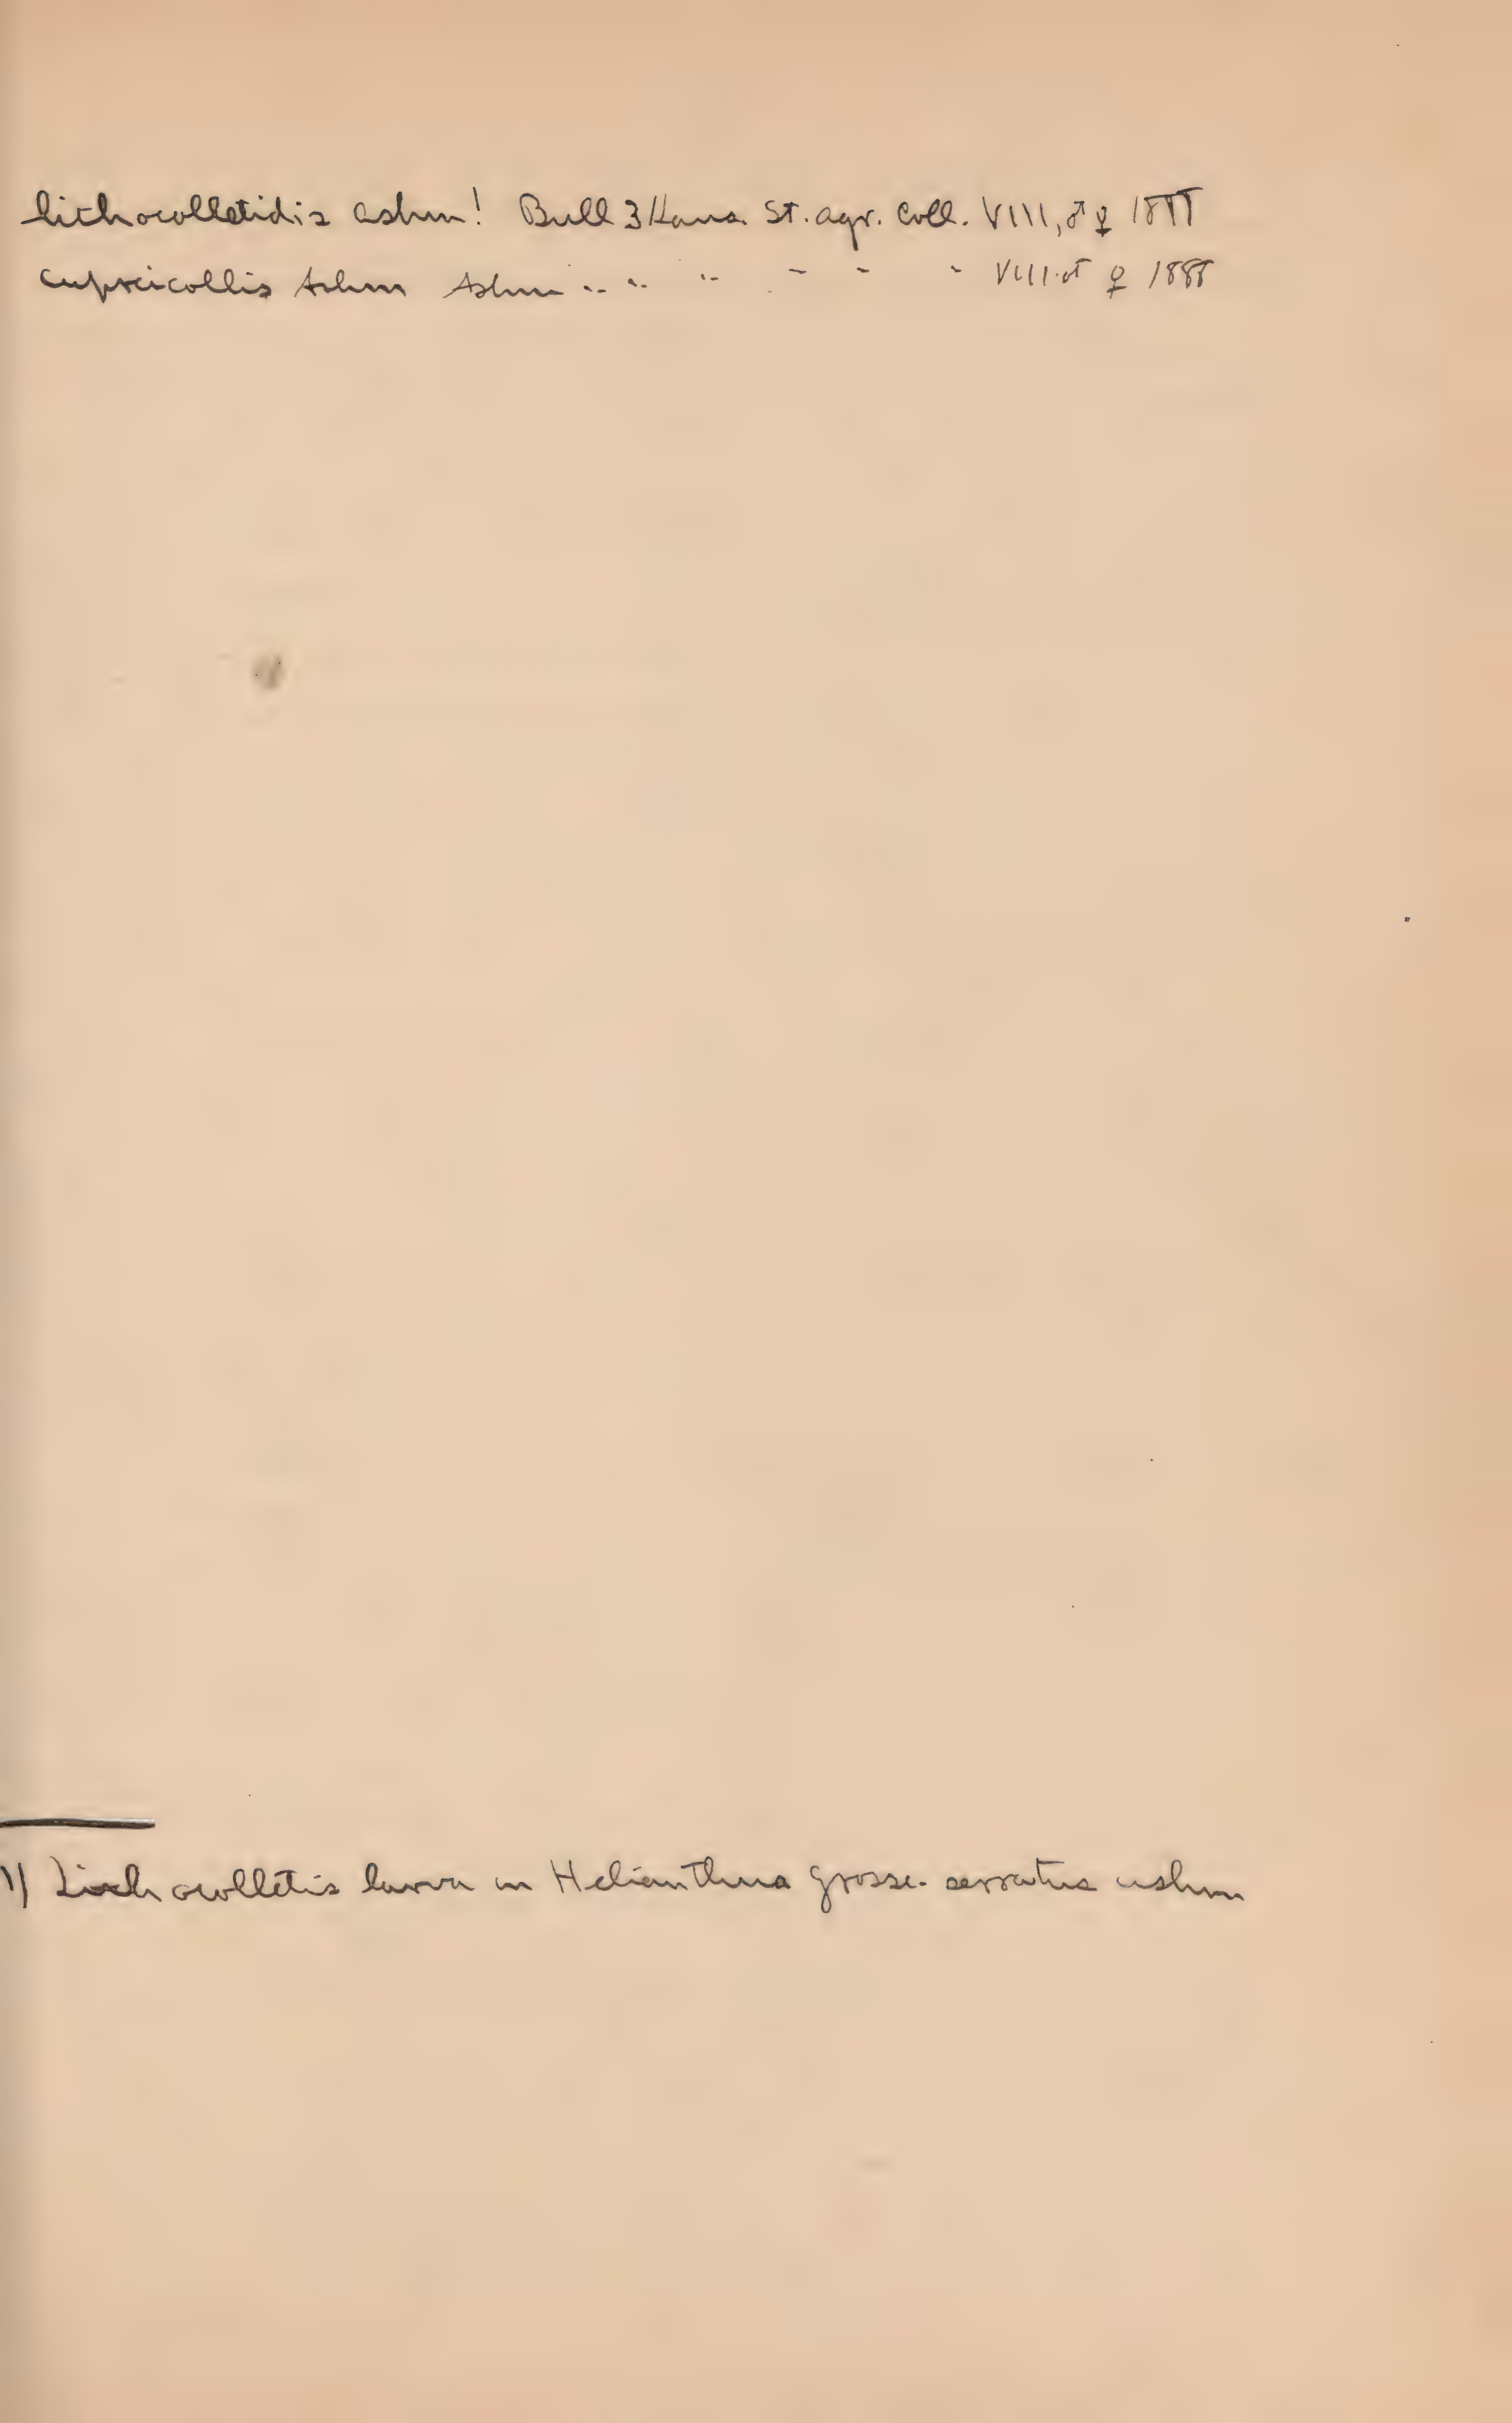 lithocolletidis Ashm! Bull 3 Kans. St. agr. Coll. VIII, ♂ ♀ 1888
cupreicollis Ashm Ashm " " " - - - VIII. ♂ ♀ 1888
1) Lithocolletis larva in Helianthus grosse-serratus Ashm